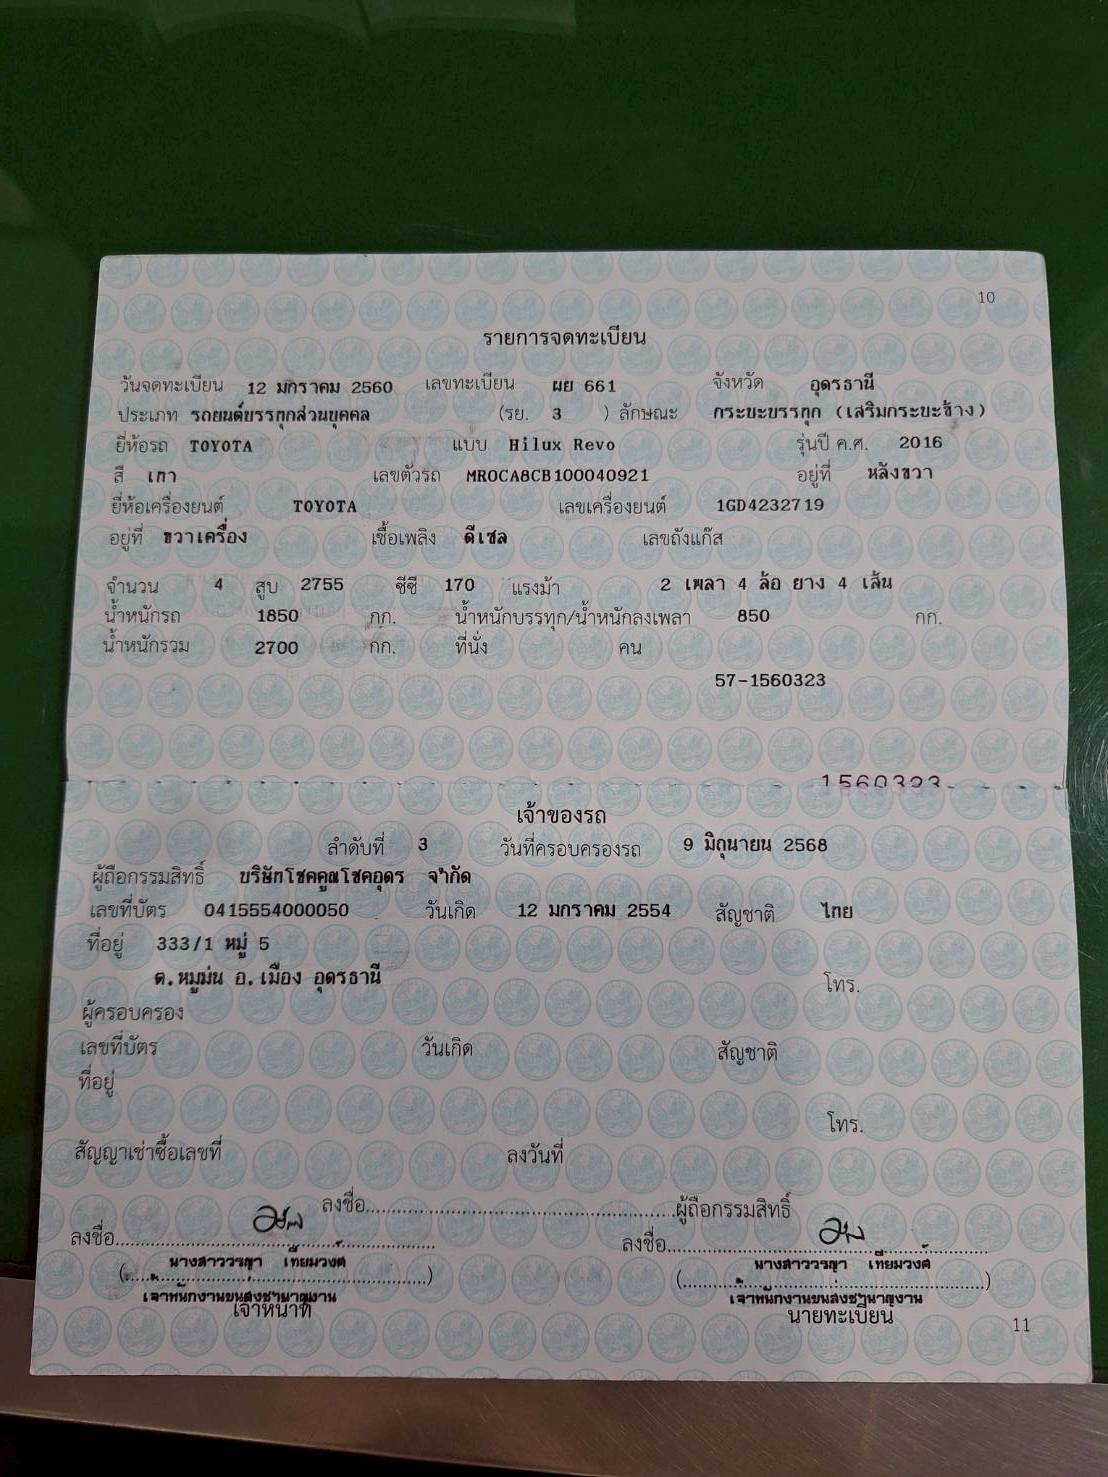 10
รายการจดทะเบียน
วันจดทะเบียน 12 มกราคม 2560 เลขทะเบียน ผย 661 จังหวัด อุดรธานี
ประเภท รถยนต์บรรทุกส่วนบุคคล (รย. 3 ) ลักษณะ กระบะบรรทุก (เสริมกระบะข้าง)
ยี่ห้อรถ TOYOTA แบบ Hilux Revo รุ่นปี ค.ศ. 2016
สี เทา เลขตัวรถ MR0CA8CB100040921 อยู่ที่ หลังขวา
ยี่ห้อเครื่องยนต์ TOYOTA เลขเครื่องยนต์ 1GD4232719
อยู่ที่ ขวาเครื่อง เชื้อเพลิง ดีเซล เลขถังแก๊ส
จำนวน 4 สูบ 2755 ซีซี 170 แรงม้า 2 เพลา 4 ล้อ ยาง 4 เส้น
น้ำหนักรถ 1850 กก. น้ำหนักบรรทุก/น้ำหนักลงเพลา 850 กก.
น้ำหนักรวม 2700 กก. ที่นั่ง คน
57-1560323
1560323
เจ้าของรถ
ลำดับที่ 3 วันที่ครอบครองรถ 9 มิถุนายน 2568
ผู้ถือกรรมสิทธิ์ บริษัทโชคคูณโชคอุดร จำกัด
เลขที่บัตร 0415554000050 วันเกิด 12 มกราคม 2554 สัญชาติ ไทย
ที่อยู่ 333/1 หมู่ 5
ต.หมูม่น อ.เมือง อุดรธานี โทร.
ผู้ครอบครอง
เลขที่บัตร วันเกิด สัญชาติ
ที่อยู่
โทร.
สัญญาเช่าซื้อเลขที่ ลงวันที่
ลงชื่อ....................ผู้ถือกรรมสิทธิ์
ลงชื่อ.................... ลงชื่อ....................
(นางสาววรญา เทียมวงศ์) (นางสาววรญา เทียมวงศ์)
เจ้าพนักงานขนส่งชำนาญงาน เจ้าพนักงานขนส่งชำนาญงาน
เจ้าหน้าที่ นายทะเบียน
11